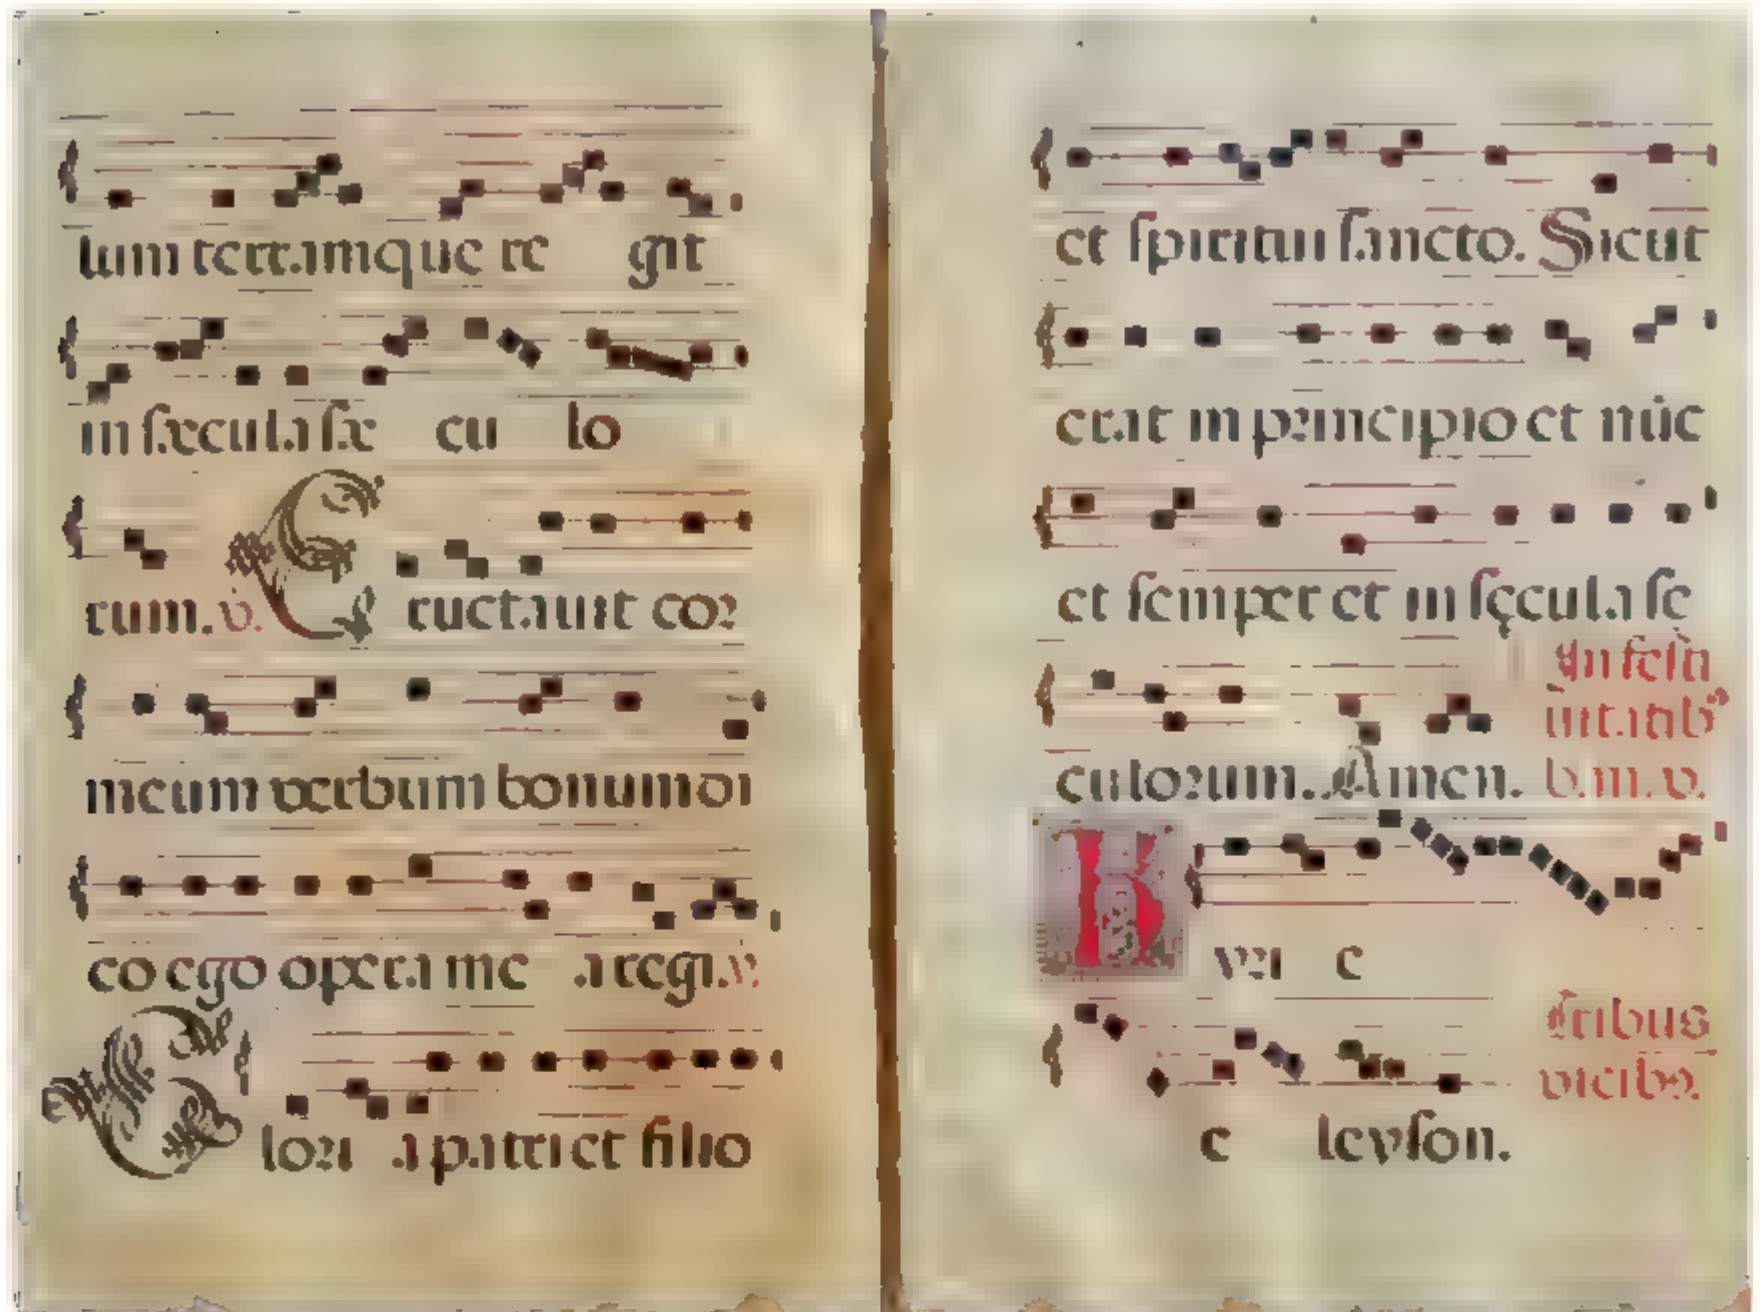 lum terramque re git
in ſæcula ſæ cu lo
rum. v. Eructauit cor
meum verbum bonum di
co ego opera me a regi. v.
Glori a patri et filio
et ſpiritui ſancto. Sicut
erat in principio et nūc
et ſemper et in ſęcula ſe
culorum. Amen.
In feſti
uitatib⁹
b. m. v.
Kyri e
e leyſon.
Tribus
vicibꝰ.